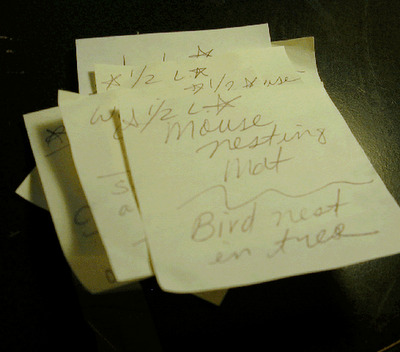 1/2 L
1/2
W 1/2 L
Mouse
nesting
Mat
Bird nest
in tree